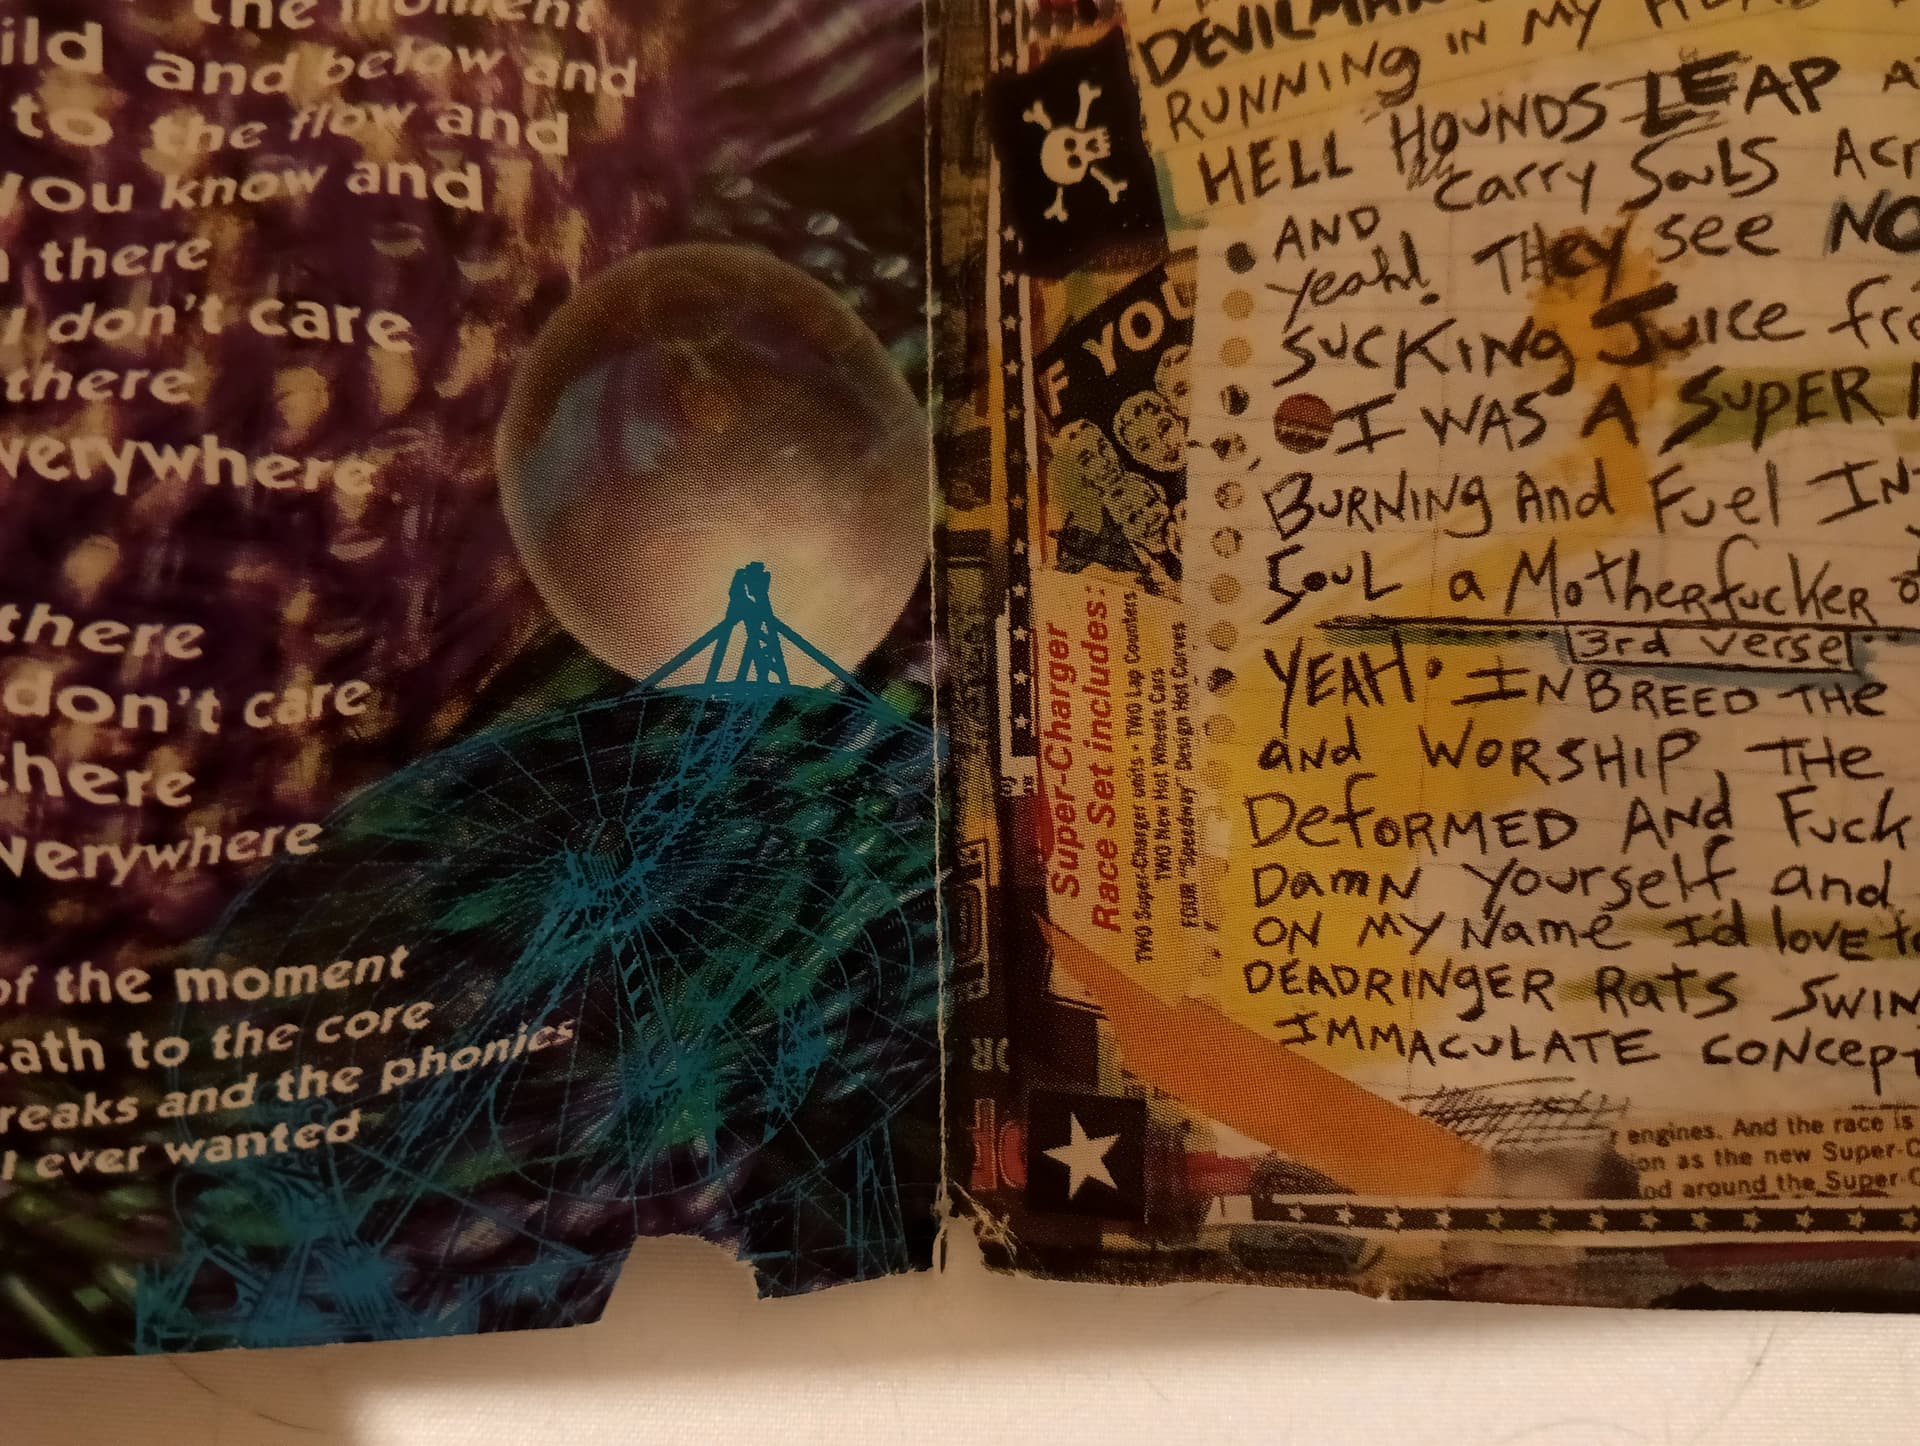 the moment
ild and below and
to the flow and
you know and
there
I don't care
there
verywhere
there
don't care
there
verywhere
of the moment
eath to the core
reaks and the phonics
I ever wanted
DEVILMAN
RUNNING IN MY HEAD
HELL HOUNDS LEAP
AND carry SouLS Acr
yeah! THey see NO
SUCKING JuICE fro
I WAS A SUPER
BURNING And Fuel INT
SouL a MotherfuckeR
3rd verse
YEAH • INBREED THE
and WORSHIP, THE
DefORMED AND Fuck
DamN yourself and
ON MY Name I'd love to
DEADRINGER Rats SWIN
IMMACULATE CONCEPT
F YOU
Super-Charger
Race Set includes:
TWO Super-Charger units • TWO Lap Counters
TWO New Hot Wheels Cars
FOUR "Speedway" Design Hot Curves
r engines. And the race is
ion as the new Super-C
od around the Super-C